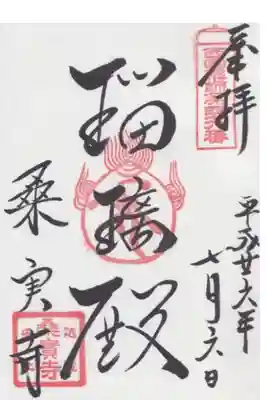 奉拝
平成廿六年
七月六日
瑠璃殿
桑実寺